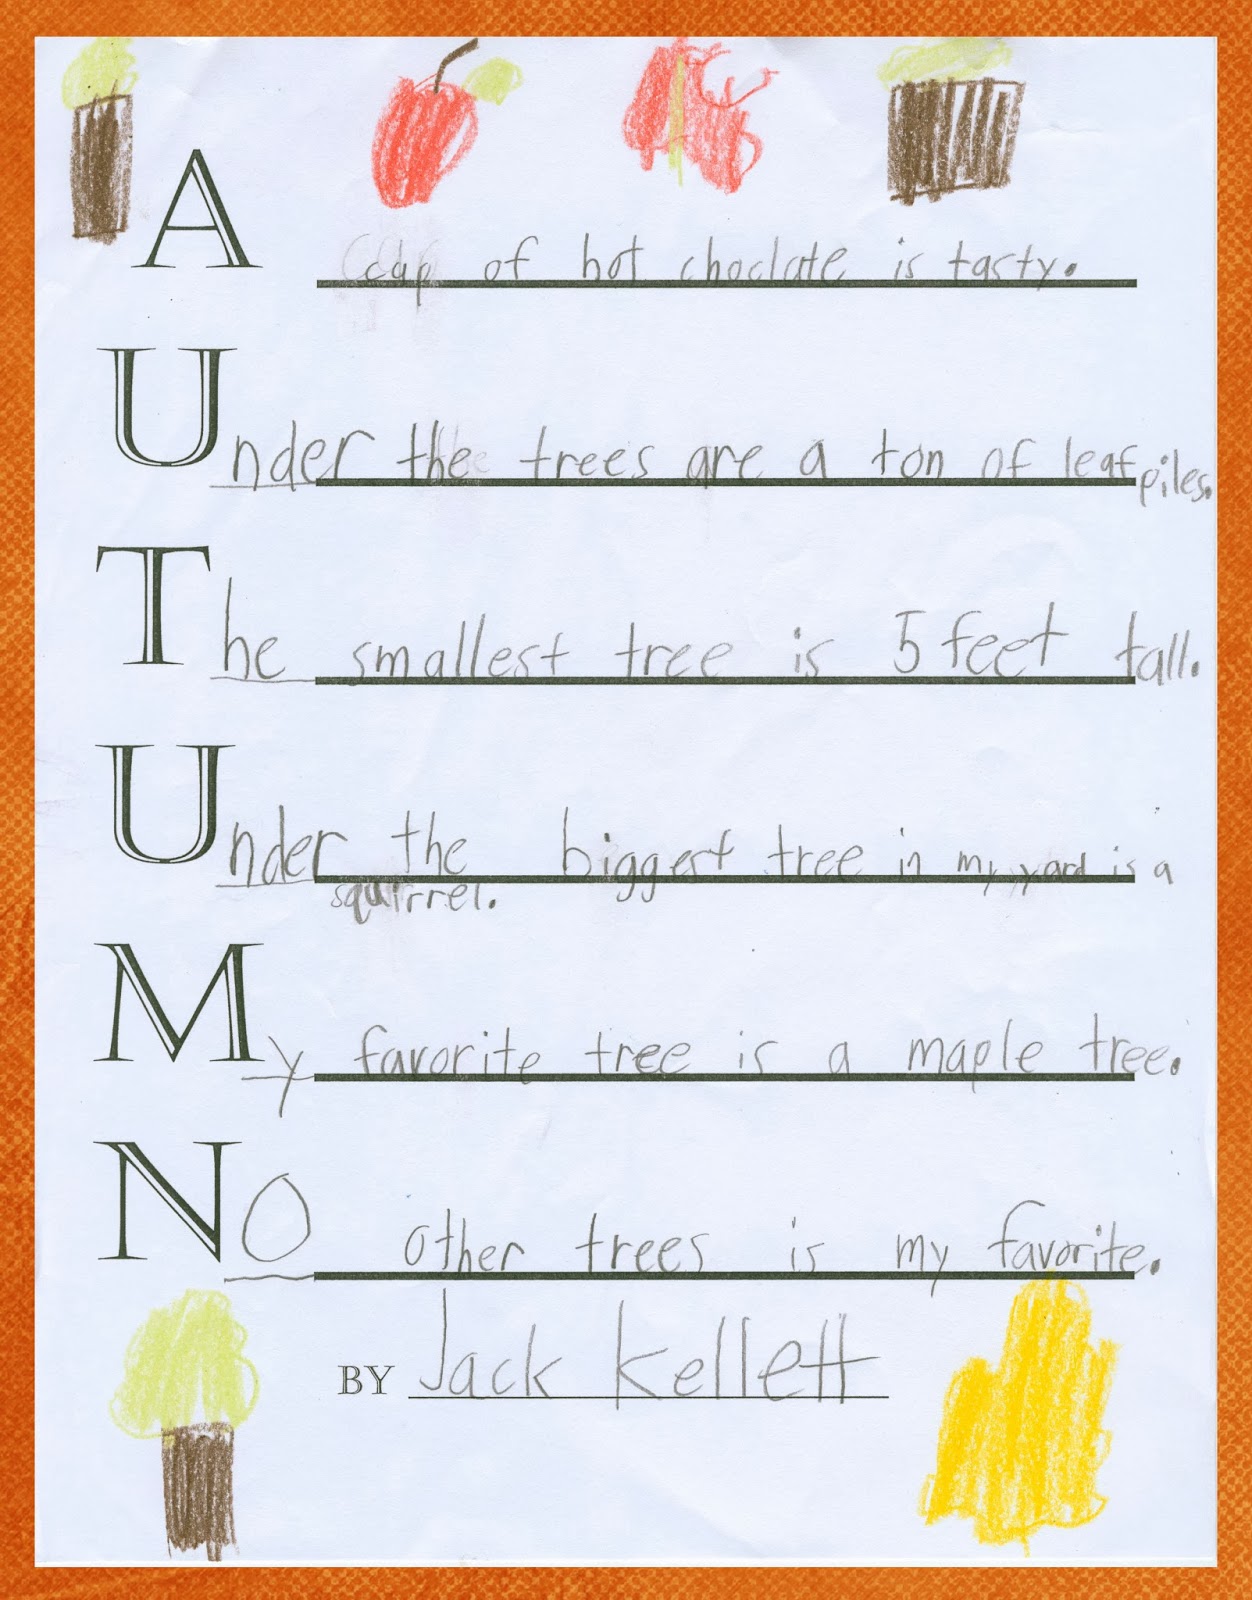 A cup of hot choclate is tasty.
Under the trees are a ton of leaf piles.
The smallest tree is 5 feet tall.
Under the biggest tree in my yard is a
squirrel.
My favorite tree is a maple tree.
No other trees is my favorite.
BY Jack Kellett